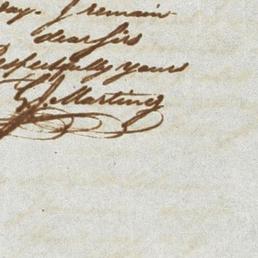 I remain
dear Sir
Respectfully yours
G. J. Martin